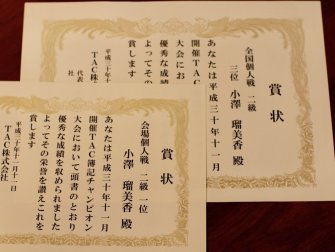 賞状
全国個人戦 二級
三位 小澤 瑠美香 殿
あなたは平成三十年十一月
開催TAC
大会にお
優秀な成績
よってその
賞します
平成三十年十
TAC株
代表
社
賞状
会場個人戦 二級 一位
小澤 瑠美香 殿
あなたは平成三十年十一月
開催TAC簿記チャンピオン
大会において頭書のとおり
優秀な成績を収められました
よってその栄誉を讃えこれを
賞します
平成三十年十二月十二日
TAC株式会社